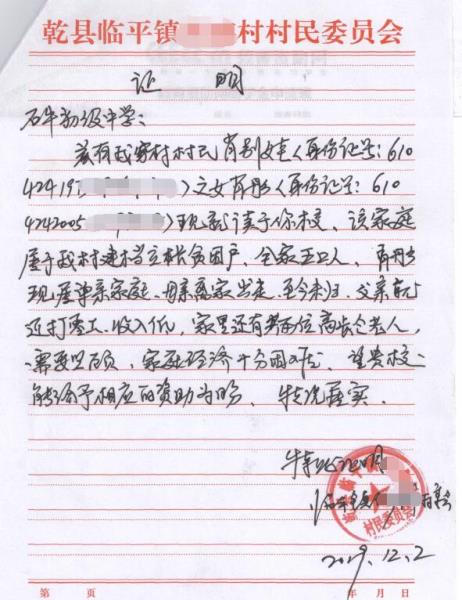 乾县临平镇 村村民委员会
证 明
石牛初级中学：
兹有我 村村民肖别娃（身份证号：610
42419 ）之女肖彤（身份证号：610
4242005 ）现就读于你校，该家庭
属于我村建档立卡贫困户，全家五口人，肖彤
现属单亲家庭，母亲离家出走，至今未归，父亲就
近打零工，收入低，家里还有两位高龄老人，
需要照顾，家庭经济十分困难，望贵校
能给予相应的资助为盼。 情况属实。
特此证明
临平镇 村委会
村民委员会
2019.12.2
第 页 年 月 日